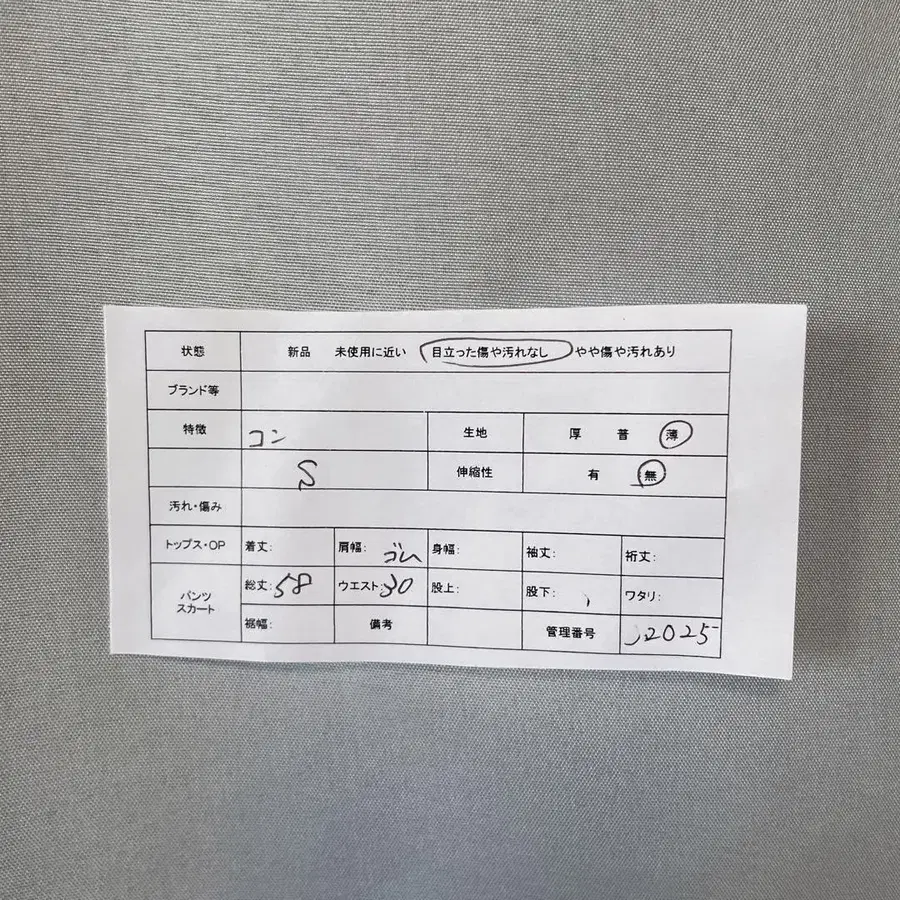 状態 新品 未使用に近い 目立った傷や汚れなし やや傷や汚れあり
ブランド等
特徴 コン 生地 厚 普 薄
S 伸縮性 有 無
汚れ・傷み
トップス・OP 着丈: 肩幅: ゴム 身幅: 袖丈: 裄丈:
パンツ スカート 総丈:58 ウエスト:30 股上: 股下: ワタリ:
裾幅: 備考 管理番号 2025